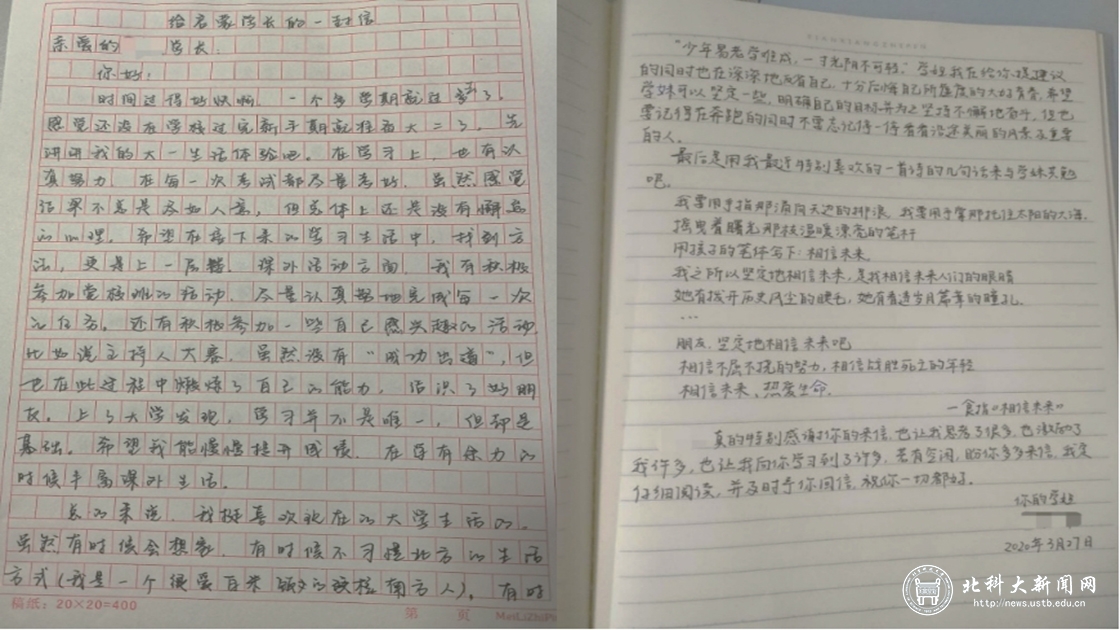 给启蒙学长的一封信
亲爱的 学长.
你好:
时间过得好快啊. 一个多学期就过完了.
感觉还没在学校过完新手期就往大二了. 先
讲讲我的大一生活体验吧. 在学习上, 也有认
真努力. 在每一次考试都尽量考好. 虽然感觉
结果不总是尽如人意, 但总体上还是没有懈怠
的心理. 希望在接下来的学习生活中, 找到方
法, 更是上一层楼. 课外活动方面, 我有积极
参加党校班的活动. 尽量认真努力地完成每一次
的任务. 还有积极参加一些自己感兴趣的活动.
比如说主持人大赛. 虽然没有“成功出道”, 但
也在此过程中锻炼了自己的能力, 结识了好朋
友. 上了大学发现, 学习并不是唯一, 但却是
基础. 希望我能慢慢提升成绩. 在学有余力的
时候丰富课外生活.
总的来说, 我挺喜欢现在的大学生活的.
虽然有时候会想家. 有时候不习惯北方的生活
方式(我是一个很爱白米饭的南方人). 有时
稿纸: 20×20=400 第 页
“少年易老学难成, 一寸光阴不可轻.”学姐我在给你提建议
的同时也在深深地反省自己, 十分后悔自己所虚度的大好青春. 希望
学妹可以坚定一些, 明确自己的目标并为之坚持不懈地奋斗, 但也
要记得在奔跑的同时不要忘记停一停看看沿途美丽的风景及重要
的人.
最后是用我最近特别喜欢的一首诗的几句话来与学妹共勉
吧.
我要用手指那涌向天边的排浪, 我要用手掌那托住太阳的大海,
摇曳着曙光那枝温暖漂亮的笔杆
用孩子的笔体写下: 相信未来.
我之所以坚定地相信未来, 是我相信未来人们的眼睛
她有拨开历史风尘的睫毛, 她有看透岁月篇章的瞳孔.
...
朋友, 坚定地相信未来吧
相信不屈不挠的努力, 相信战胜死亡的年轻
相信未来, 热爱生命.
—食指《相信未来》
真的特别感谢你的来信, 也让我思考了很多, 也激励了
我许多, 也让我向你学习到了许多. 若有空闲, 盼你多多来信, 我定
仔细阅读, 并及时予你回信. 祝你一切都好.
你的学姐
2020年3月27日
北科大新闻网
http://news.ustb.edu.cn